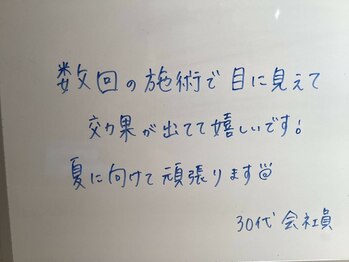 数回の施術で目に見えて
効果が出てて嬉しいです!
夏に向けて頑張ります☺
30代 会社員